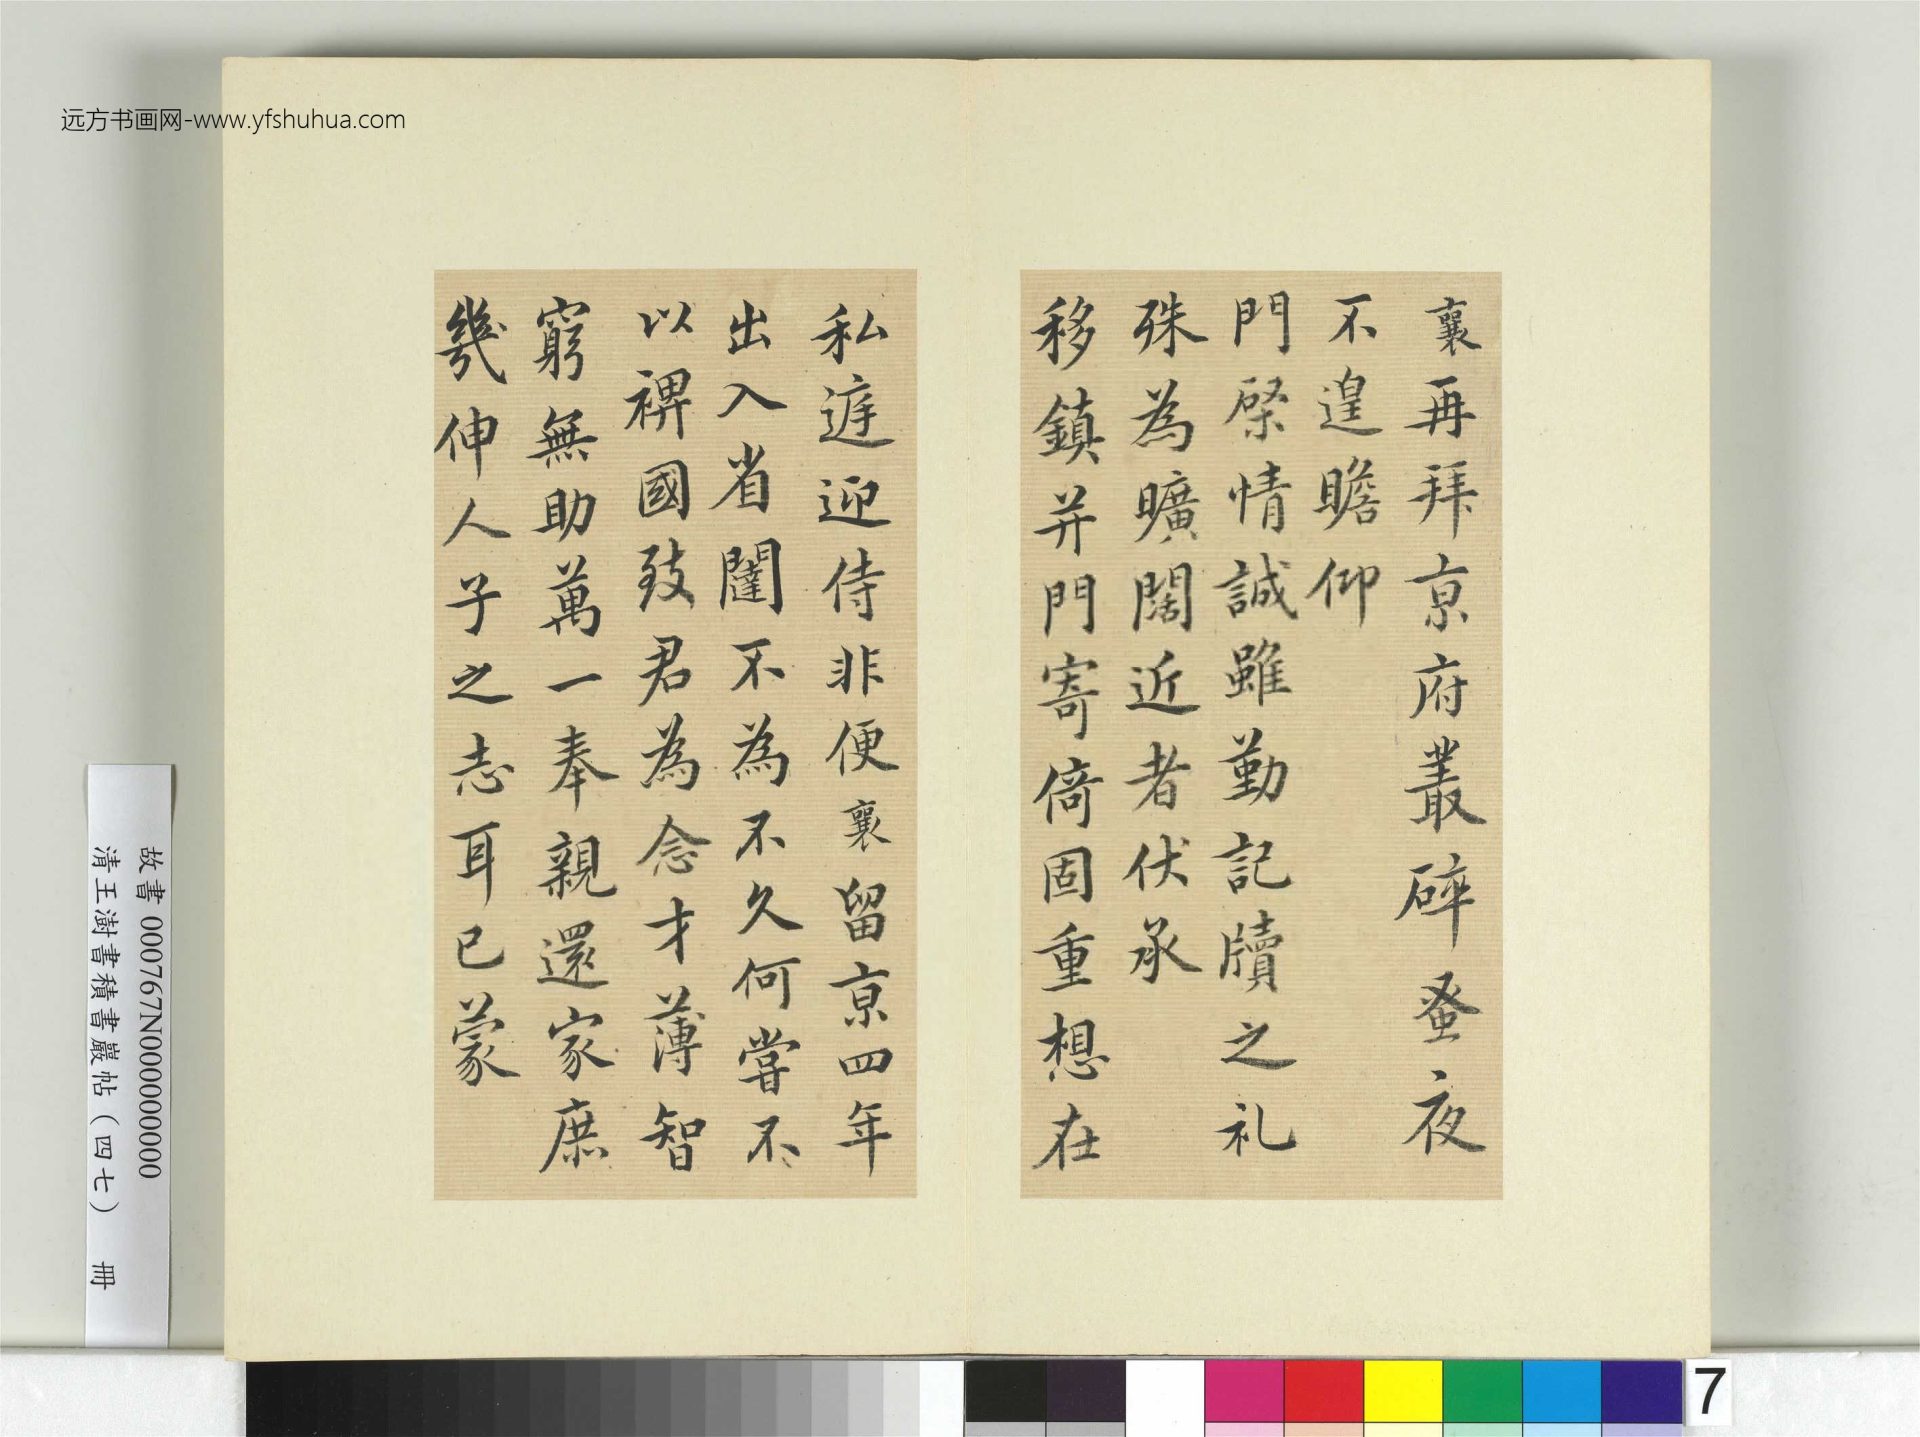 远方书画网-www.yfshuhua.com
襄再拜京府叢碎蚤夜
不遑瞻仰
門棨情誠雖勤記牘之礼
殊為曠闊近者伏承
移鎮并門寄倚固重想在
私遽迎侍非便襄留京四年
出入省闥不為不久何嘗不
以裨國致君為念才薄智
窮無助萬一奉親還家庶
幾伸人子之志耳已蒙
故書 000767N000000000
清王澍書積書巖帖(四七) 冊
7